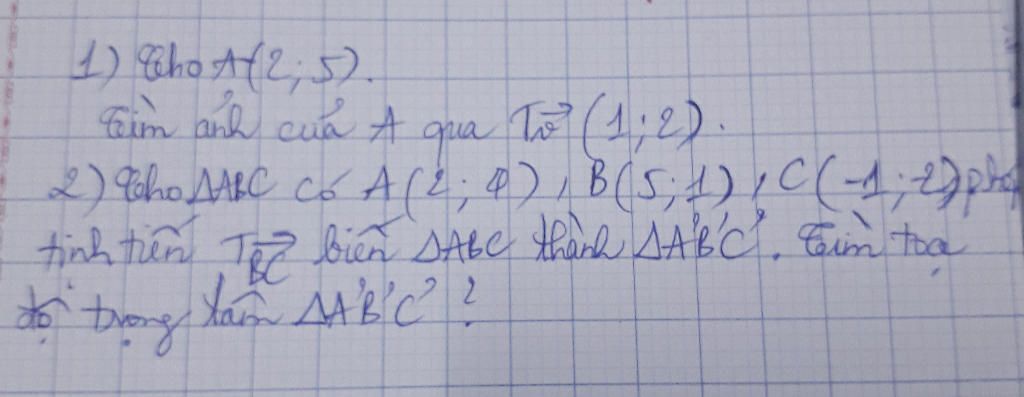 1) Cho A(2; 5).
Tìm ảnh của A qua Tv⃗ (1; 2).
2) Cho ΔABC có A(2; 4), B(5; 1), C(-1; -2) phé
tịnh tiến TBC⃗ biến ΔABC thành ΔA'B'C'. Tìm toạ
độ trọng tâm ΔA'B'C' ?